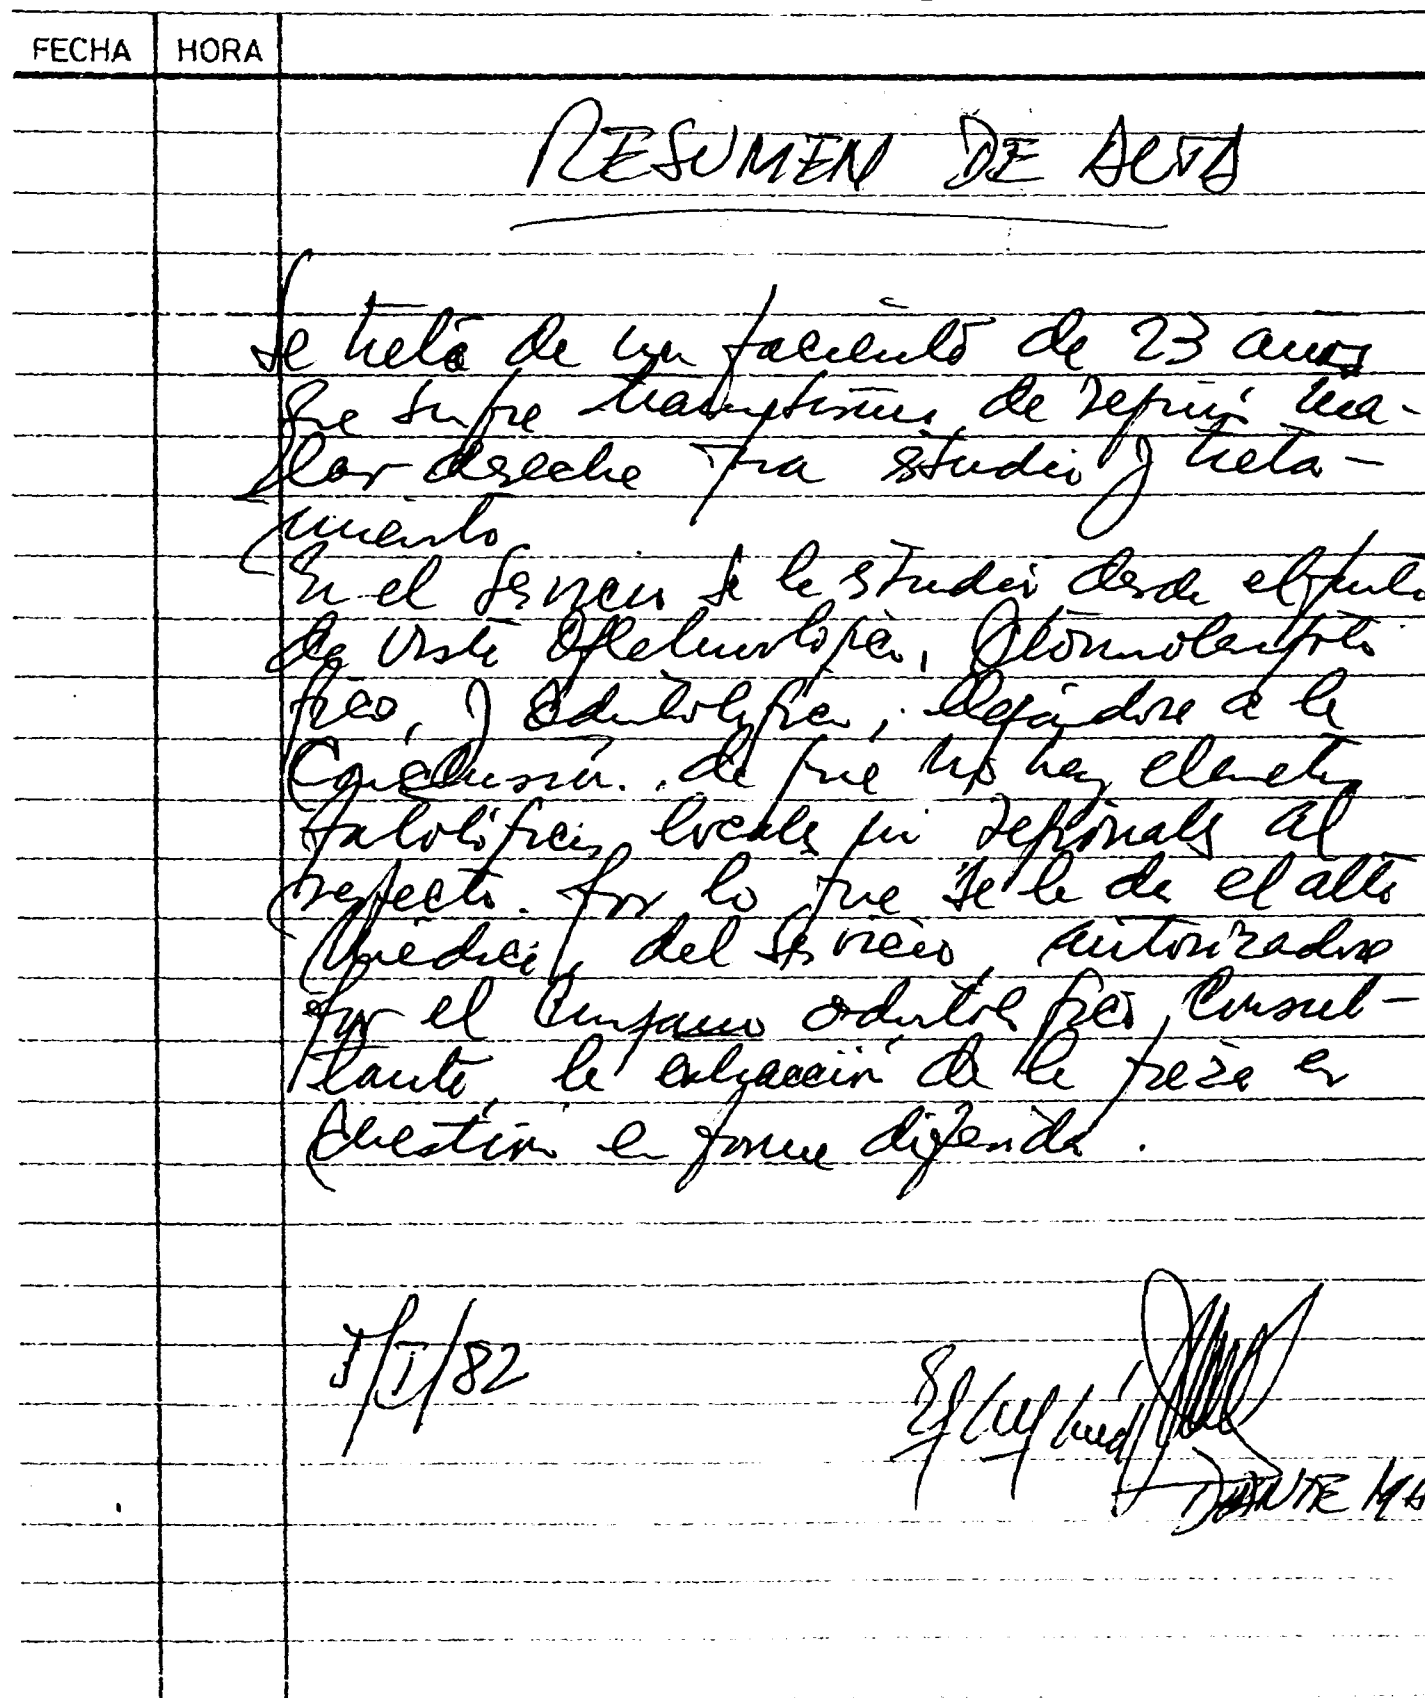 FECHA HORA
RESUMEN DE ALTA
Se trata de un paciente de 23 años
que sufre traumatismo de región ma-
lar derecha para estudio y trata-
miento
En el servicio se le estudió desde el punto
de vista oftalmológico, Otorrinolaringoló
gico, y odontológico, llegándose a la
Conclusión. de que no hay elementos
patológicos locales ni regionales al
respecto. por lo que se le da el alta
médica, del servicio, autorizadose
por el Cirujano odontológico, Consul-
tante, la extracción de la pieza en
cuestión en forma diferida.
/I/82
DANTE MA